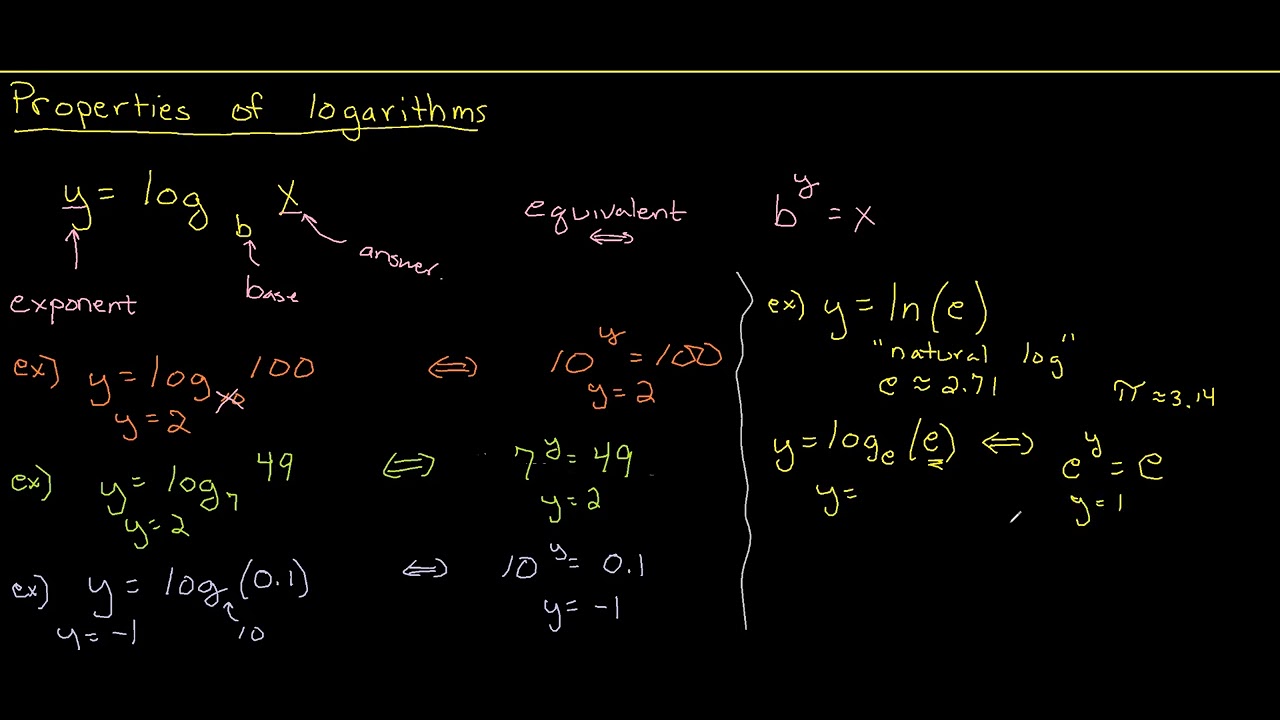 Properties of logarithms
y = log_b x
equivalent ⇔
b^y = x
answer.
exponent
base
ex) y = log 100 ⇔ 10^y = 100
y = 2
y = 2
ex) y = log_7 49 ⇔ 7^y = 49
y = 2
y = 2
ex) y = log (0.1) ⇔ 10^y = 0.1
10
y = -1
y = -1
ex) y = ln(e)
"natural log"
e ≈ 2.71
π ≈ 3.14
y = log_e (e) ⇔ e^y = e
y =
y = 1